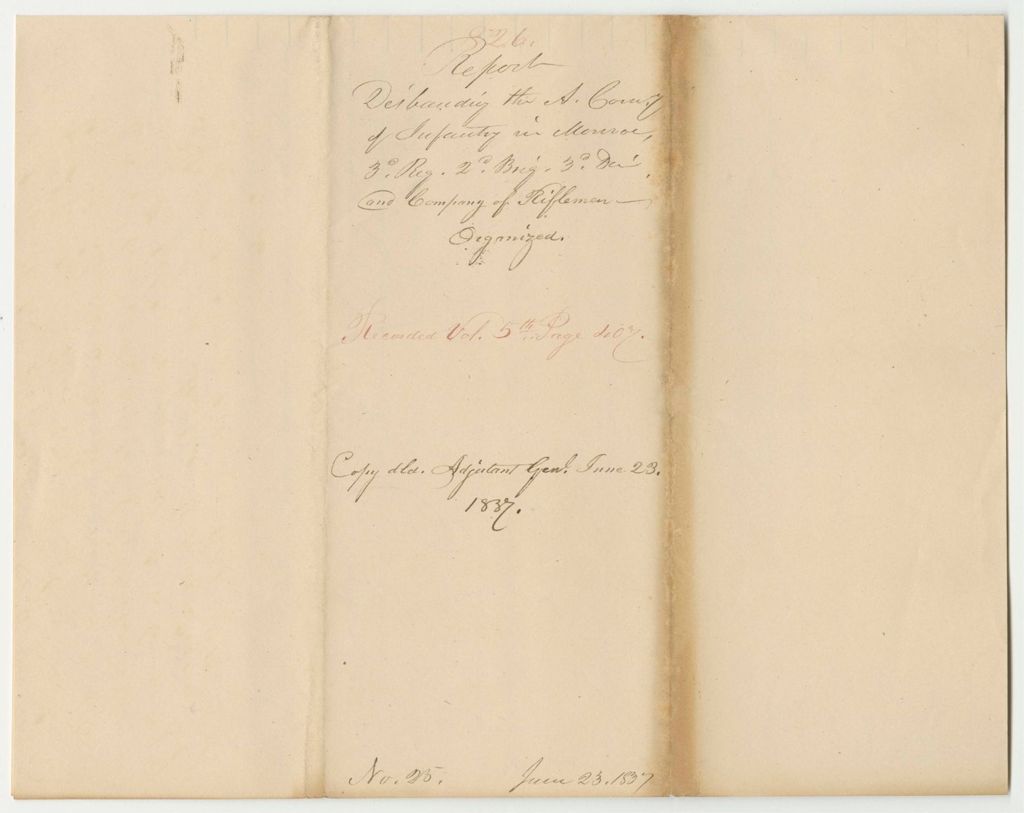 826.
Report
Disbanding the A. Com'y
of Infantry in Monroe,
3d. Reg. 2d. Brig. 3d. Div.
and Company of Riflemen —
Organized.
Recorded Vol. 5th. Page 407.
Copy dld. Adjutant Genl. June 23.
1837.
No. 25. June 23. 1837